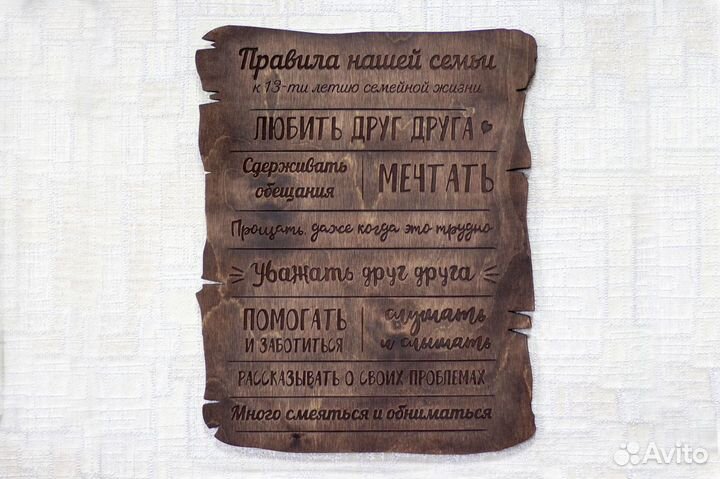 Правила нашей семьи
к 13-ти летию семейной жизни
ЛЮБИТЬ ДРУГ ДРУГА
Сдерживать
обещания
МЕЧТАТЬ
Прощать, даже когда это трудно
Уважать друг друга
ПОМОГАТЬ
И ЗАБОТИТЬСЯ
слушать
и слышать
РАССКАЗЫВАТЬ О СВОИХ ПРОБЛЕМАХ
Много смеяться и обниматься
Avito